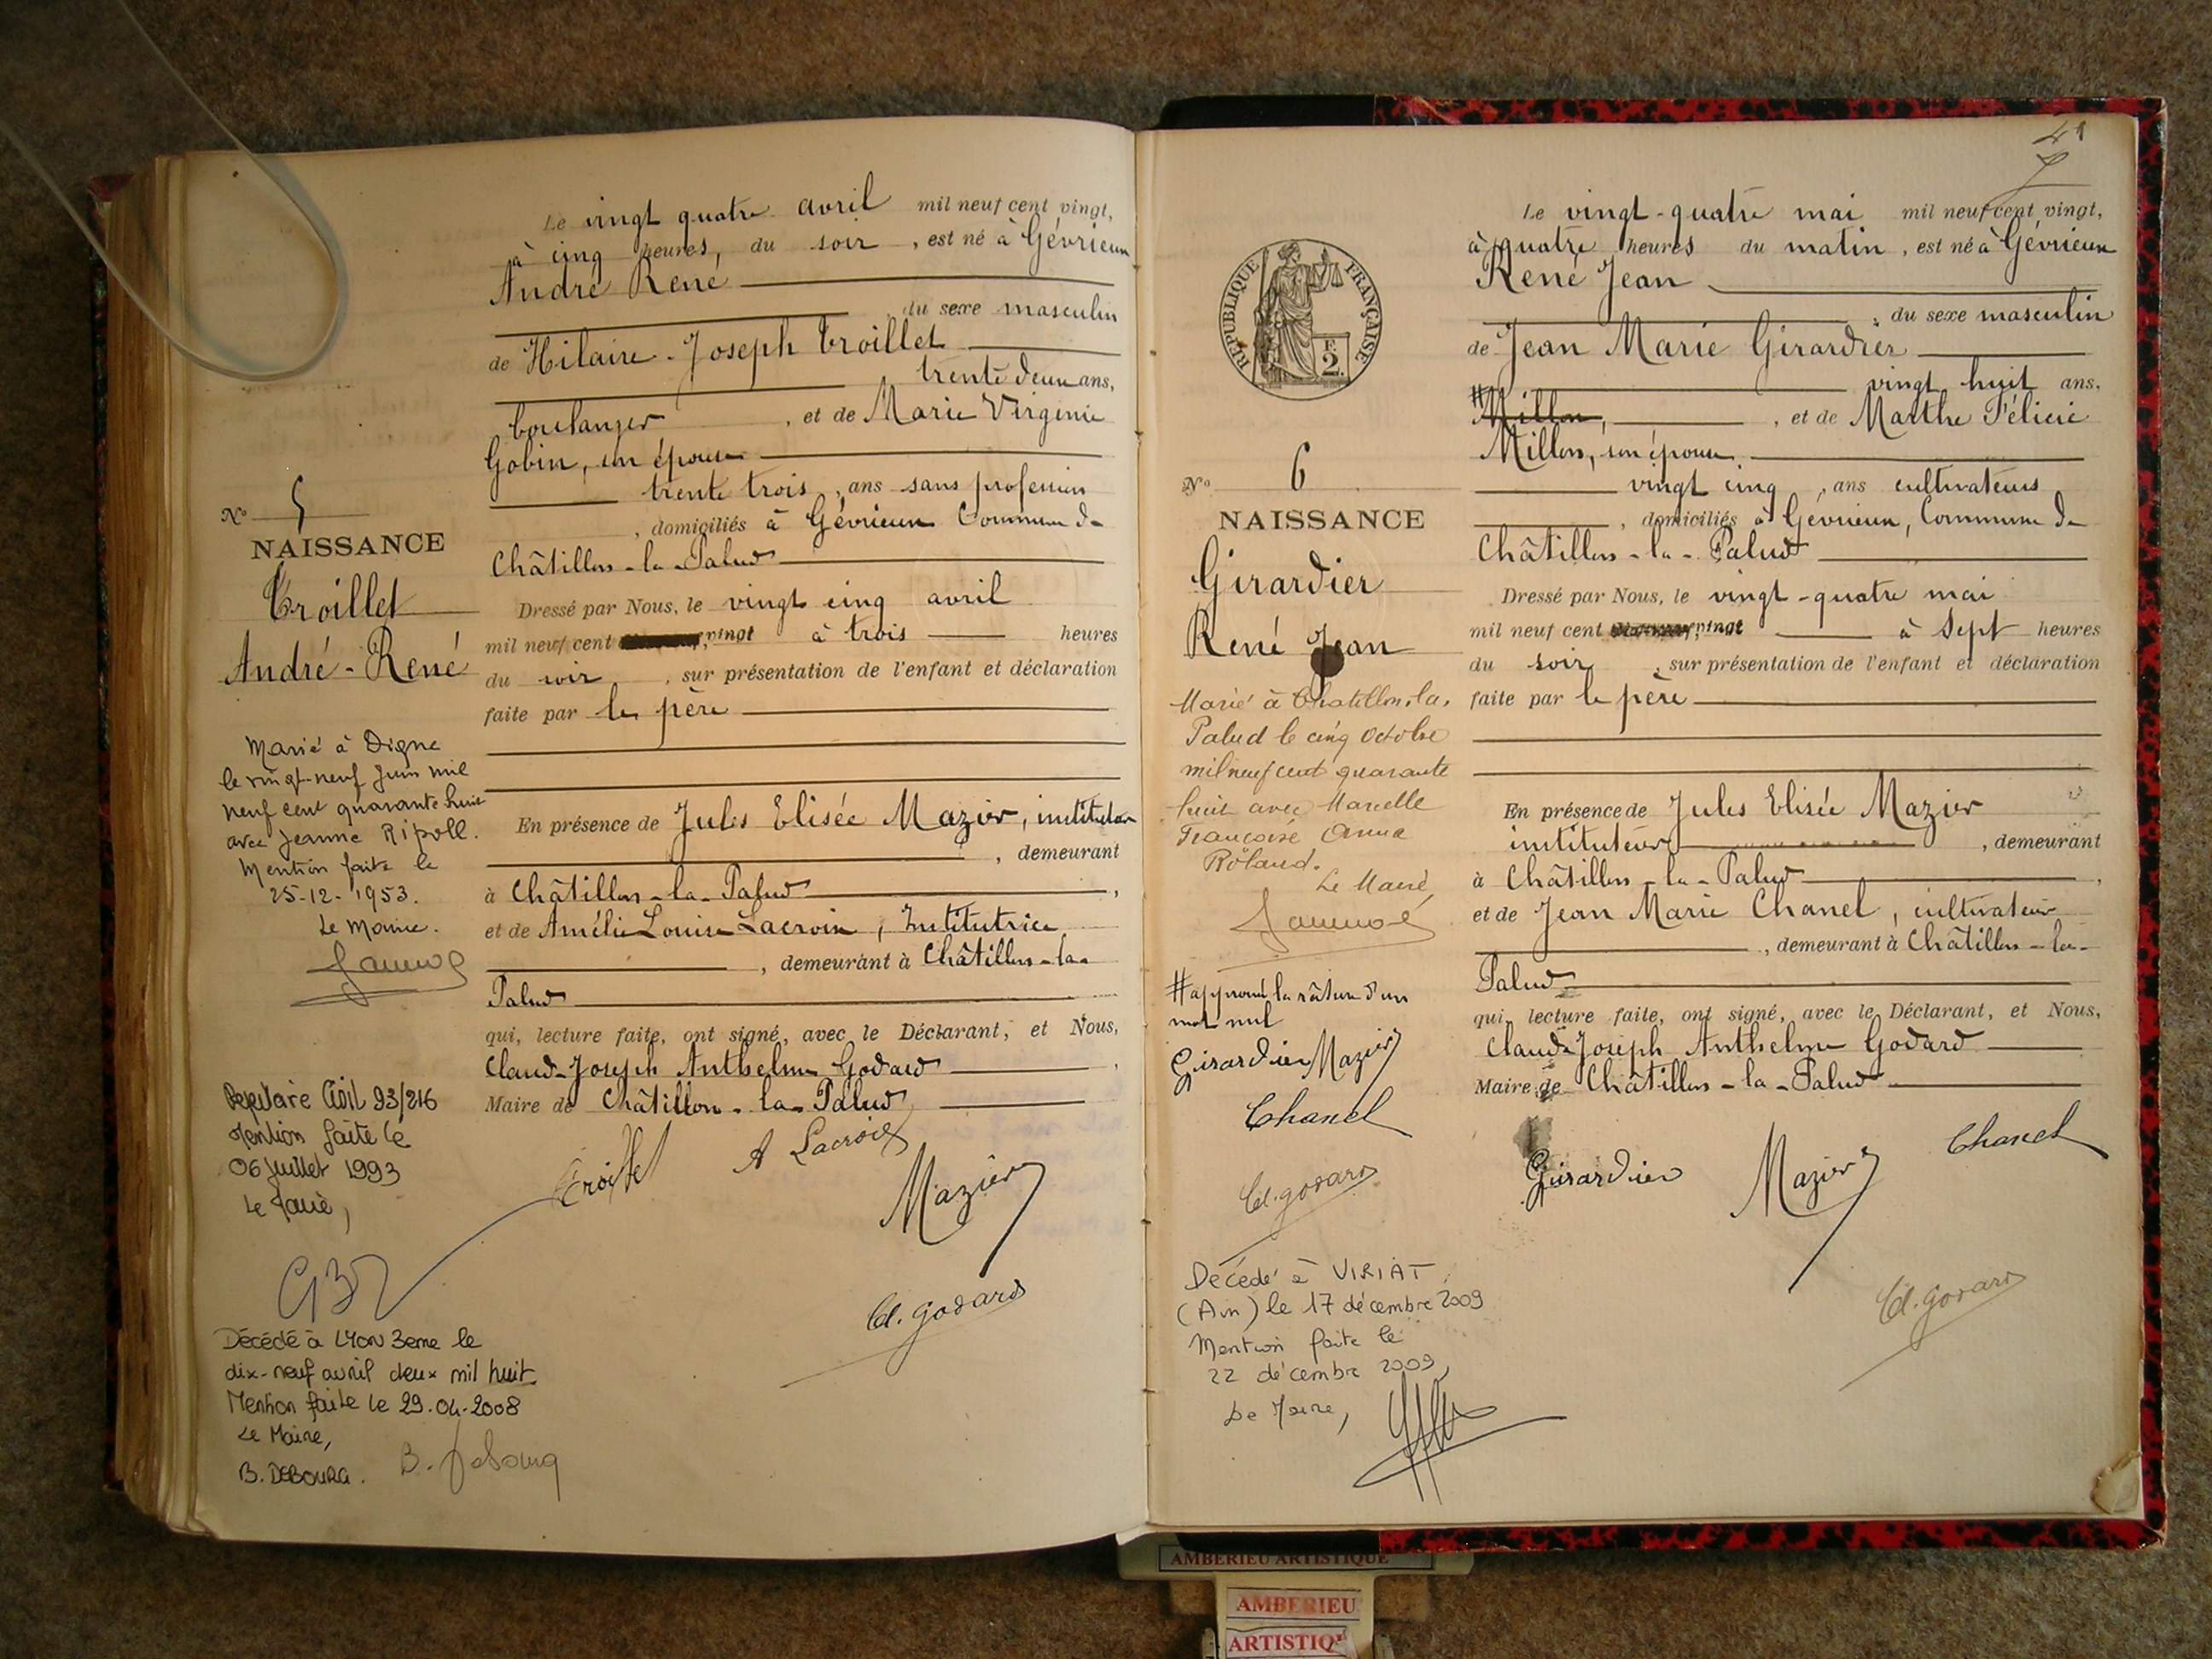 Le vingt quatre avril mil neuf cent vingt,
à cinq heures, du soir, est né à Gévrieux
André René
du sexe masculin
de Hilaire-Joseph Troillet
trente deux ans,
boulanger, et de Marie Virginie
Gobin, son épouse
trente trois, ans sans profession
, domiciliés à Gévrieux Commune de
Châtillon-la-Palud
N° 5
NAISSANCE
Troillet
André-René
Dressé par Nous, le vingt cinq avril
mil neuf cent vingt à trois heures
du soir, sur présentation de l'enfant et déclaration
faite par le père
En présence de Jules Elisée Mazier, instituteur
, demeurant
à Châtillon-la-Palud,
et de Amélie Louise Lacroix, Institutrice
, demeurant à Châtillon-la-
Palud
qui, lecture faite, ont signé, avec le Déclarant, et Nous,
Claude-Joseph Anthelme Godard,
Maire de Châtillon-la-Palud
Troillet A Lacroix
Mazier
Cl. Godard
Marié à Digne
le vingt-neuf Juin mil
neuf cent quarante huit
avec Jeanne Ripoll.
Mention faite le
25-12-1953.
Le Maire.
Répertoire Civil 93/216
Mention faite le
06 Juillet 1993
Le Maire,
Décédé à LYON 3eme le
dix-neuf avril deux mil huit
Mention faite le 29.04.2008
Le Maire,
B. DEBOURG.
41
Le vingt-quatre mai mil neuf cent vingt,
à quatre heures du matin, est né à Gévrieux
René Jean
, du sexe masculin
de Jean Marie Girardier
vingt huit ans,
# Millon, , et de Marthe Félicie
Millon, son épouse
vingt cinq, ans cultivateurs
, domiciliés à Gévrieux, Commune de
Châtillon-la-Palud
RÉPUBLIQUE FRANÇAISE
F.
2.
N° 6
NAISSANCE
Girardier
René Jean
Dressé par Nous, le vingt-quatre mai
mil neuf cent vingt à sept heures
du soir, sur présentation de l'enfant et déclaration
faite par le père
En présence de Jules Elisée Mazier
instituteur, demeurant
à Châtillon-la-Palud,
et de Jean Marie Chanel, cultivateur
, demeurant à Châtillon-la-
Palud
qui, lecture faite, ont signé, avec le Déclarant, et Nous,
Claude Joseph Anthelme Godard
Maire de Châtillon-la-Palud
Girardier Mazier Chanel
Cl. Godard
Marié à Chatillon.la.
Palud le cinq Octobre
mil neuf cent quarante
huit avec Marcelle
Françoise Anna
Roland.
Le Maire,
# approuvé la rature d'un
mot nul
Girardier Mazier
Chanel
Cl. Godard
Décédé à VIRIAT
(Ain) le 17 décembre 2009
Mention faite le
22 décembre 2009,
Le Maire,
AMBERIEU ARTISTIQUE
AMBERIEU
ARTISTIQ